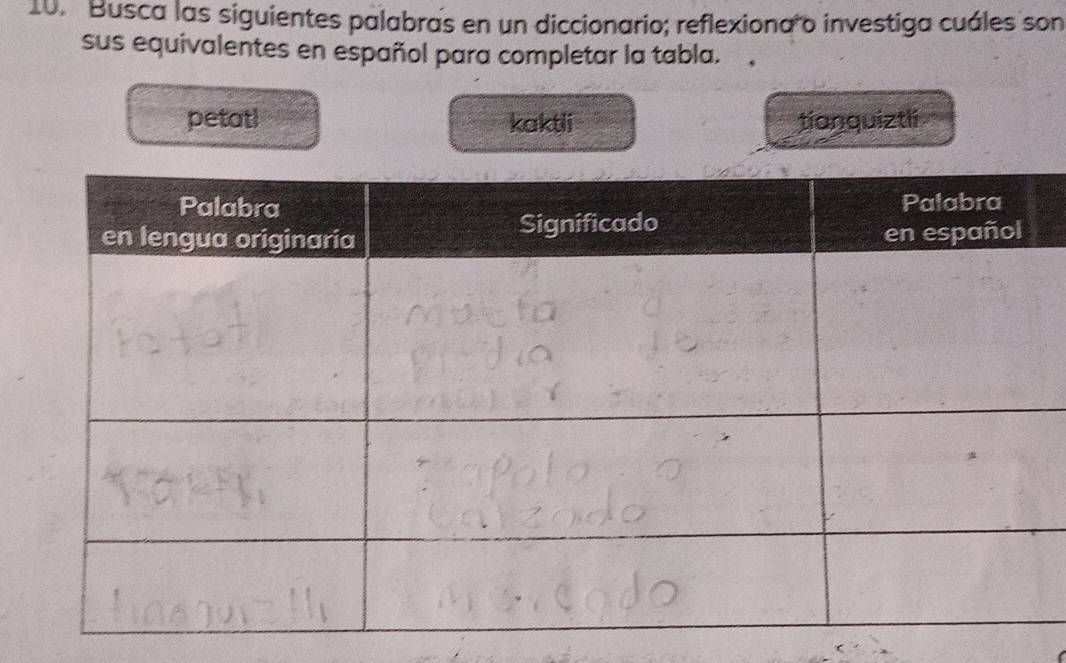 10. Busca las siguientes palabras en un diccionario; reflexiona o investiga cuáles son
sus equivalentes en español para completar la tabla.
petatl
kaktli
tianquiztli
Palabra
en lengua originaria
Significado
Palabra
en español
Petatl
o
de
zapato o
calzado
tianquiztli
Mercado